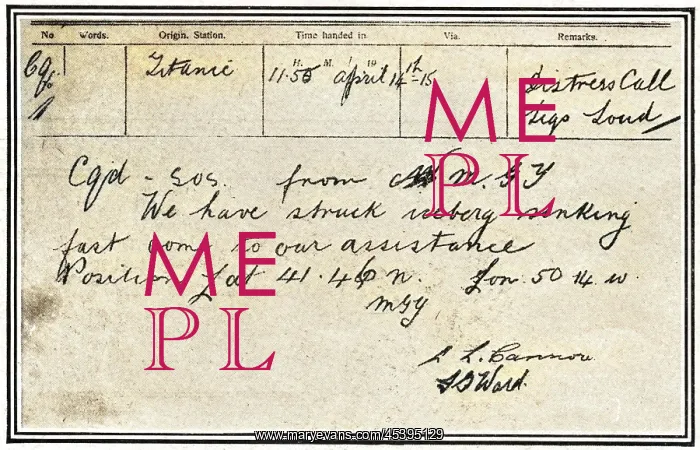 No. Words. Origin. Station. Time handed in. Via. Remarks.
H. M. 19
Titanic 11.55 April 14th-15 Distress Call
1 Sigs Loud
Cqd - SOS. from M.G.Y
We have struck iceberg sinking
fast come to our assistance
Position Lat 41.46 n. Lon. 50 14. w.
MGY
L. Cannon
Ward.
ME
PL
ME
PL
www.maryevans.com/45395129